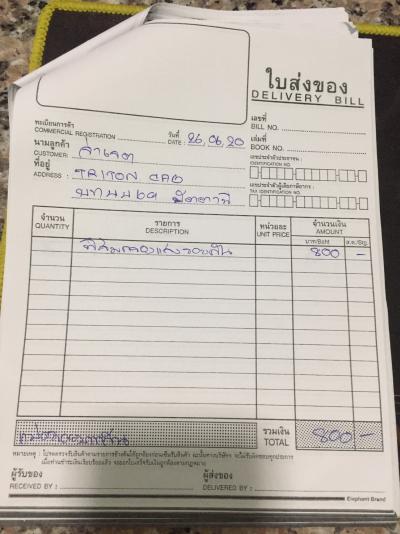 ใบส่งของ
DELIVERY BILL
ทะเบียนการค้า
COMMERCIAL REGISTRATION
วันที่ DATE : 26,06,20
เลขที่
BILL NO.
นามลูกค้า
CUSTOMER:
เล่มที่
BOOK NO.
ที่อยู่
ADDRESS : TRITON CAB
เลขประจำตัวประชาชน :
IDENTIFICATION NO.
เลขประจำตัวผู้เสียภาษีอากร :
TAX IDENTIFICATION NO.
จำนวน รายการ หน่วยละ จำนวนเงิน
QUANTITY DESCRIPTION UNIT PRICE AMOUNT
บาท/Baht ส.ต./Stg.
ฟิล์มกรองแสงรอบคัน 800 -
รวมเงิน
TOTAL 800 -
ผู้รับของ
RECEIVED BY :
ผู้ส่งของ
DELIVERED BY :
Elephant Brand